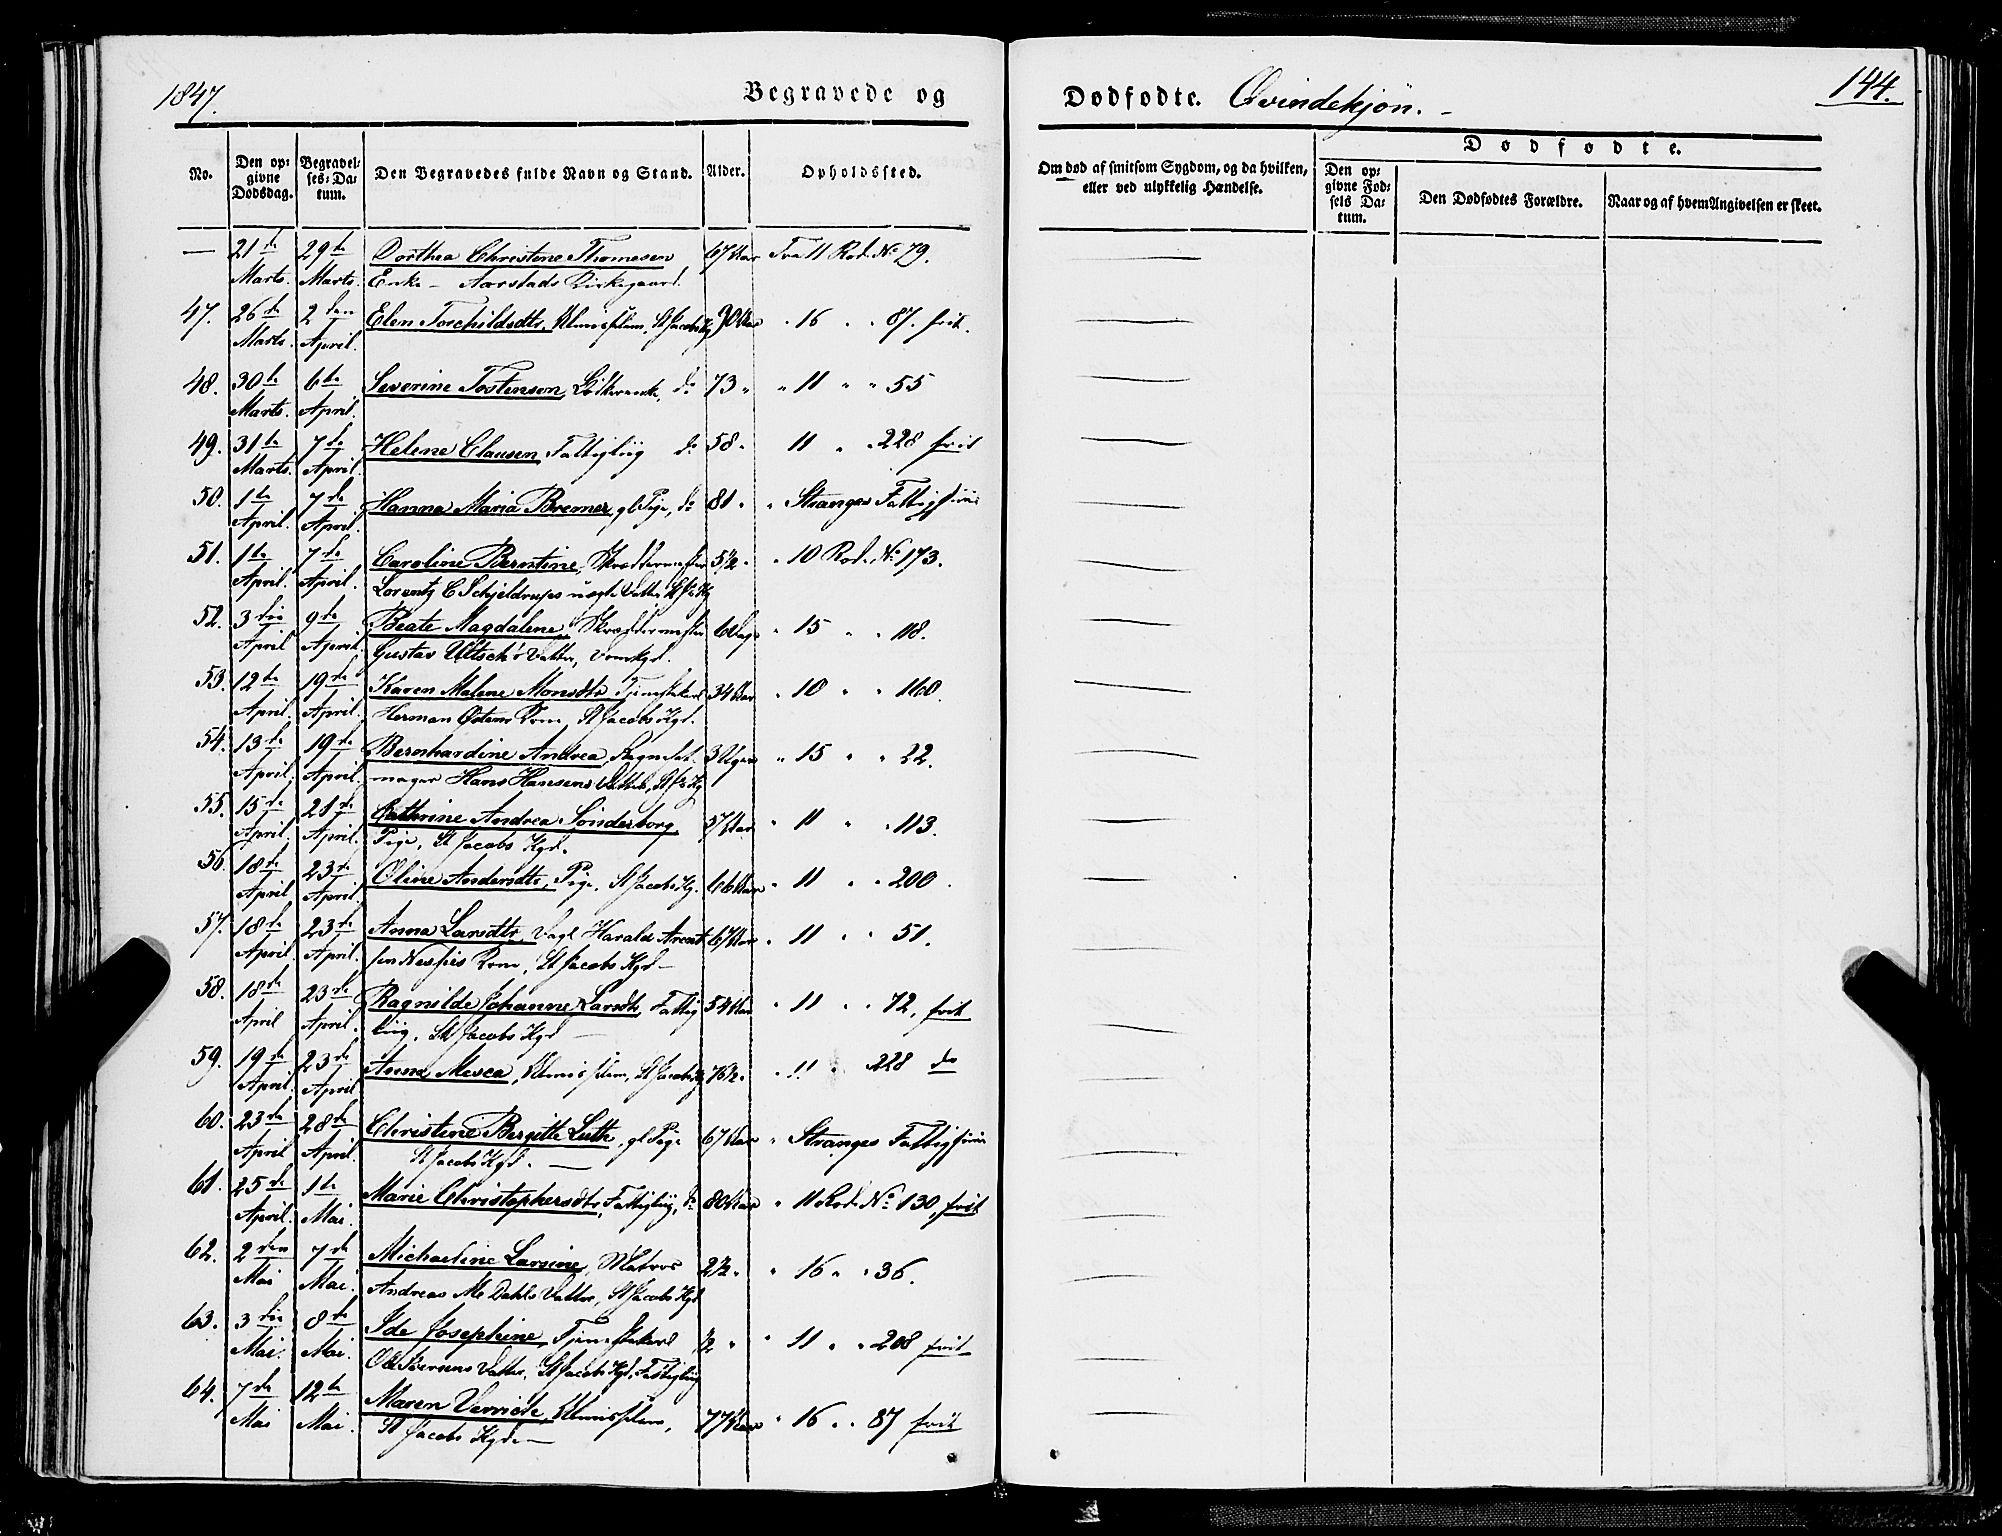 1847.
Begravede og
Dødfødte. Qvindekjøn.
144.
No.
Den opgivne Dødsdag.
Begravelses-Datum.
Den Begravedes fulde Navn og Stand.
Alder.
Opholdssted.
Om død af smitsom Sygdom, og da hvilken, eller ved ulykkelig Hændelse.
Dødfødte.
Den opgivne Fødsels Datum.
Den Dødfødtes Forældre.
Naar og af hvem Angivelsen er skeet.
— 21de Marts. 29de Marts. Dorthea Christine Thomesen 67 Aar Fra 11 Rod. No 79.
Enke — Aarstads Kirkegaard.
47. 26de Marts. 2den April. Elen Torchildsdtr, Almislem, St Jacobs Kg 90 Aar " 16 " " 87. frit.
48. 30te Marts. 6te April. Severine Tostenson, do 73 " " 11 " " 55
49. 31te Marts. 7de April. Helene Clausen Fattiglig do 58 " 11 " " 228 frit
50. 1te April. 7de April. Hanna Maria Bremer, gl Pige, do 81 " " Stranges Fattighuus
51. 1te April. 7de April. Caroline Berntine, Skræddermester 5 1/2 " " 10 Rod. No 173.
Lorentz C Schjeldrups uægte Datter St Jc Kg
52. 3die April 9de April. Beate Magdalene, Skræddermester 6 Dage " 15 " " 118.
Gustav Ultsch's Datter, Domkgd.
53. 12te April. 19de April. Karen Malene Monsdtr Tjenestekarl 34 Aar " 10 " " 110.
Herman Ostens Kone, St Jacobs Kgd.
54. 13de April. 19de April. Bernhardine Andrea, 3 Uger " 15 " " 22.
mager Hans Hansens Datter, St Jc Kg
55. 15de April. 21de April. Cathrine Andrea Sønderborg, 57 Aar " 11 " " 113.
Pige, St Jacobs Kgd.
56. 18de April 23de April. Oline Andersdtr, Pige, St Jacobs Kg. 66 Aar " 11 " " 200.
57. 18de April. 23de April. Anna Larsdtr, Harald Arent 67 Aar " 11 " " 51.
sen Nesses Kone, St Jacobs Kgd —
58. 18de April 23de April. Ragnilde Johanne Larsdtr, Fattig 54 Aar " 11 " " 72, frit
liig, St Jacobs Kgd —
59. 19de April. 23de April Anna Mesca, Almislem, St Jacobs Kg 76 1/2 " " 11 " 228 do
60. 23de April 28de April. Christine Bergitte Luth, gl Pige 67 Aar " Stranges Fattighuus
St Jacobs Kgd. —
61. 25de April. 1te Mai. Marie Christophersdtr, Fattiglig, do 80 Aar " 11 Rod. No 130, frit
62. 2den Mai 7de Mai. Michaeline Larsine, Matros 2 1/2 " " 16 " " 36.
Andreas M Dahls Datter, St Jacobs Kgd
63. 3die Mai. 8de Mai. Ide Josephine, Tjenestekarl 1/2 " " 11 " " 208 frit
Ole Iversens Datter, St Jacobs Kgd, Fattiglig
64. 7de Mai 12te Mai. Maren Vernich, Almislem, 77 Aar " 16 " " 87 frit
St Jacobs Kgd —